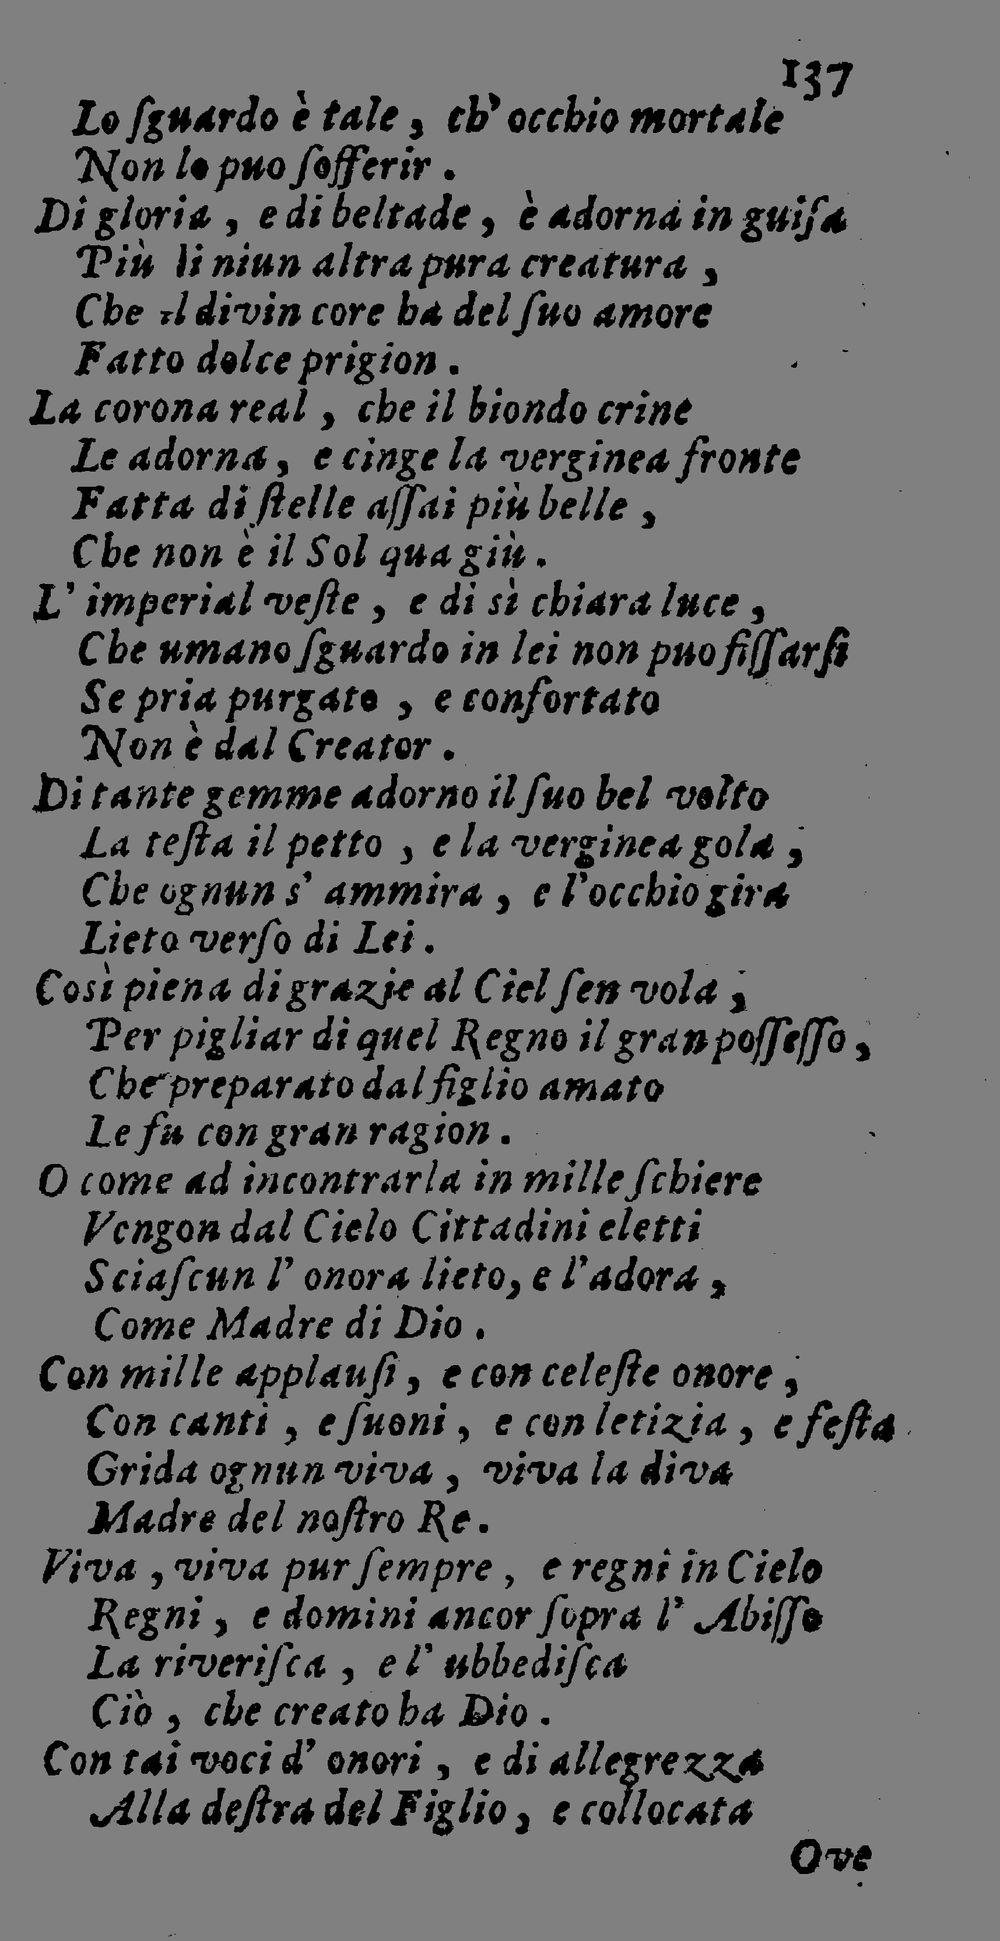 137
Lo ſguardo è tale, ch' occhio mortale
Non lo puo ſofferir.
Di gloria, e di beltade, è adorna in guiſa
Più di niun altra pura creatura,
Che il divin core ha del ſuo amore
Fatto dolce prigion.
La corona real, che il biondo crine
Le adorna, e cinge la verginea fronte
Fatta di ſtelle aſſai più belle,
Che non è il Sol qua giù.
L' imperial veſte, e di sì chiara luce,
Che umano ſguardo in lei non puo fiſſarſi
Se pria purgato, e confortato
Non è dal Creator.
Di tante gemme adorno il ſuo bel volto
La teſta il petto, e la verginea gola,
Che ognun s' ammira, e l'occhio gira
Lieto verſo di Lei.
Così piena di grazie al Ciel ſen vola,
Per pigliar di quel Regno il gran poſſeſſo,
Che preparato dal figlio amato
Le fu con gran ragion.
O come ad incontrarla in mille ſchiere
Vengon dal Cielo Cittadini eletti
Sciaſcun l' onora lieto, e l'adora,
Come Madre di Dio.
Con mille applauſi, e con celeſte onore,
Con canti, e ſuoni, e con letizia, e feſta
Grida ognun viva, viva la diva
Madre del noſtro Re.
Viva, viva pur ſempre, e regni in Cielo
Regni, e domini ancor ſopra l' Abiſſo
La riveriſca, e l' ubbediſca
Ciò, che creato ha Dio.
Con tai voci d' onori, e di allegrezza
Alla deſtra del Figlio, e collocata
Ove